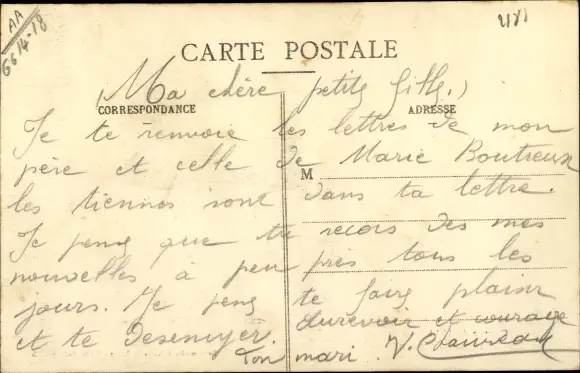 AA
GG 14-18
CARTE POSTALE
(Ma chère petite fille.)
CORRESPONDANCE
ADRESSE
Je te renvoie les lettres de mon
père et celle de Marie Boutreux
M
les tiennes sont dans ta lettre.
Je pense que tu recois des mes
nouvelles à peu près tous les
jours. Je pens te faire plaisir
et te desennuyer.
Aurevoir et courage
Ton mari V.